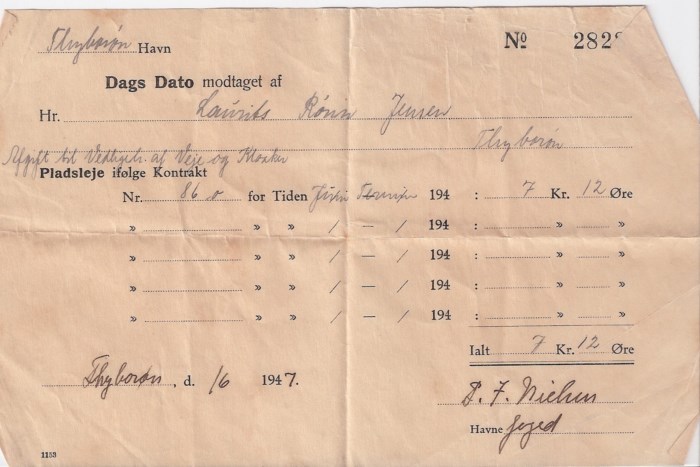 Thyborøn Havn № 2828
Dags Dato modtaget af
Hr. Laurits Jensen
Thyborøn
Afgift til Vedligeh. af Veje og Kloaker
Pladsleje ifølge Kontrakt
Nr. 86 for Tiden Juni Termin 194 : 7 Kr. 12 Øre
» » » / — / 194 : » »
» » » / — / 194 : » »
» » » / — / 194 : » »
» » » / — / 194 : » »
Ialt 7 Kr. 12 Øre
Thyborøn, d. 1/6 1947.
P. J. Nielsen
Havne foged
1133